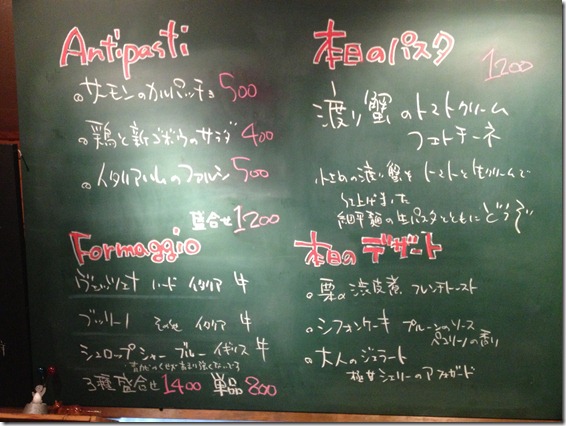 Antipasti
サーモンのカルパッチョ 500
鶏と新ゴボウのサラダ 400
イタリアハムのファルシ 500
盛合せ 1200
Formaggio
ハード イタリア 牛
その他 イタリア 牛
シュロップシャーブルー イギリス 牛
3種盛合せ 1400 単品 800
本日のパスタ
1200
渡り蟹のトマトクリーム
フェトチーネ
小さめの渡り蟹をトマトと生クリームで
仕上げました
細平麺の生パスタとともにどうぞ
本日のデザート
栗の渋皮煮 フレンチトースト
シフォンケーキ プルーンのソース
の香り
大人のジェラート
極甘シェリーのアフォガード